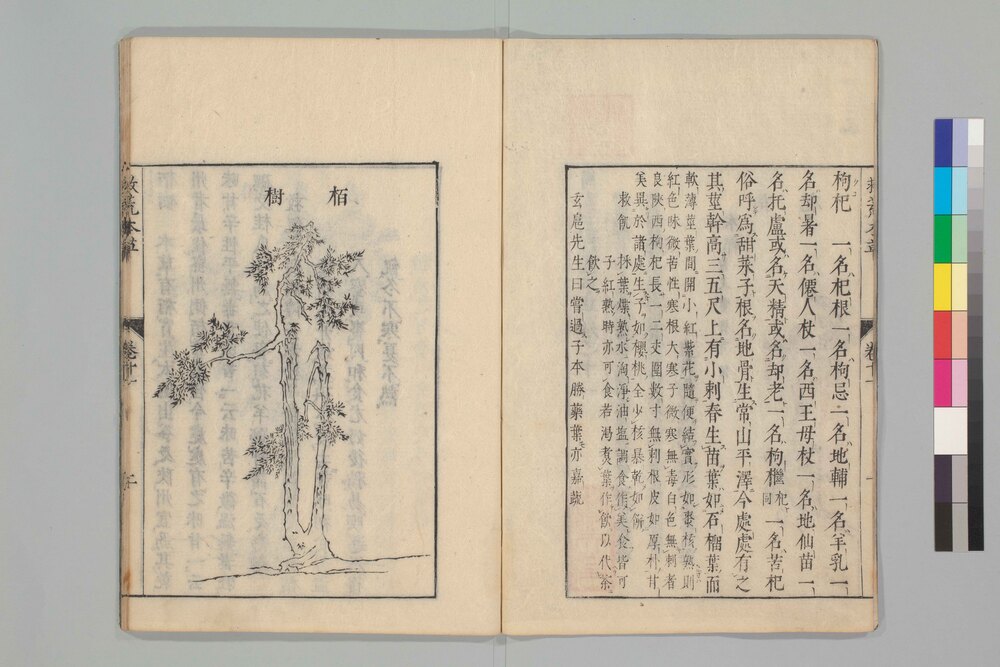 枸杞　一名杞根一名枸忌一名地輔一名羊乳一
名却暑一名僊人杖一名西王母杖一名地仙苗一
名托盧或名天精或名却老一名枸檵同杞一名苦杞
俗呼爲甜菜子根名地骨生常山平澤今處處有之
其莖幹高三五尺上有小刺春生苗葉如石榴葉而
軟薄莖葉間開小紅紫花隨便結實形如棗核熟則
紅色味微苦性寒根大寒子微寒無毒白色無刺者
良陝西枸杞長一二丈圍數寸無刺根皮如厚朴甘
美異於諸處生子如櫻桃全少核暴乾如餅
救飢　採葉煠熟水淘淨油鹽調食作羹食皆可
子紅熟時亦可食若渴煑葉作飲以代茶
飲之
玄扈先生曰嘗過子本勝藥葉亦嘉蔬
救荒本草
卷十一
栢樹